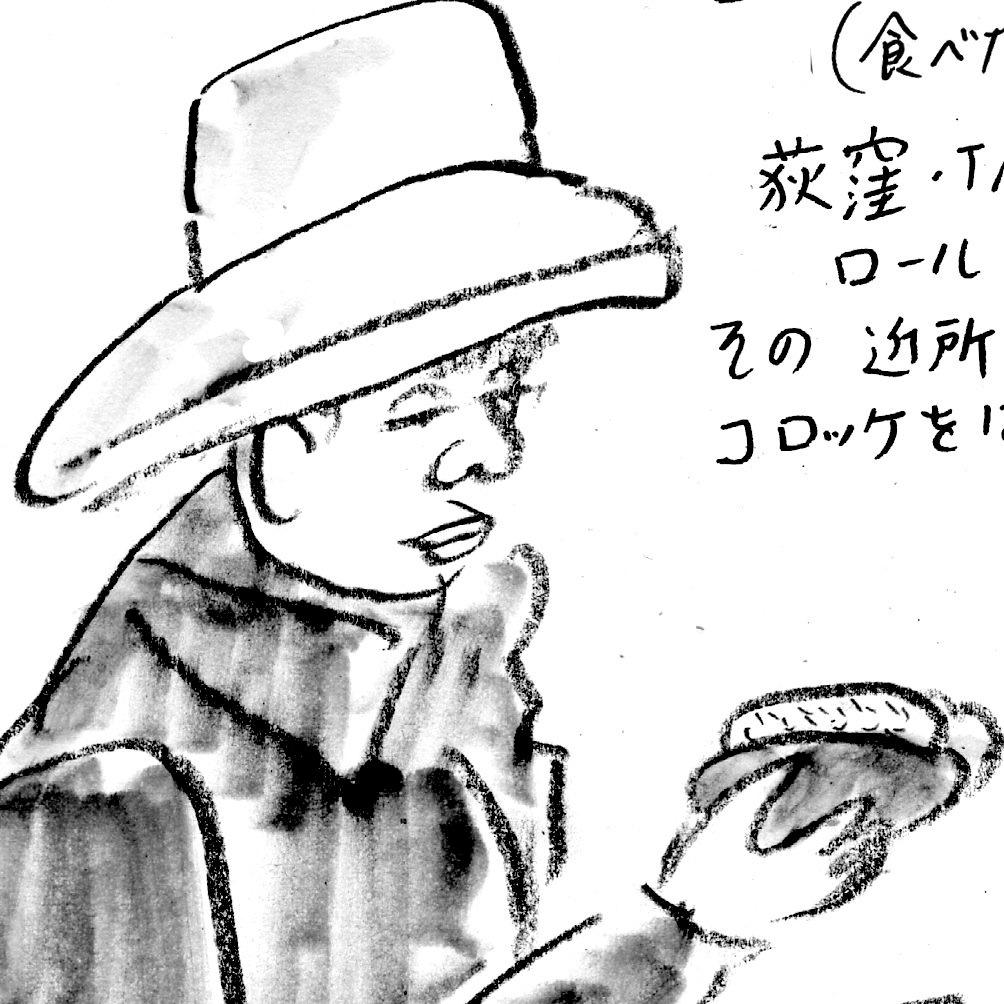 (食べた
荻窪・T
ロール
その 近所
コロッケを